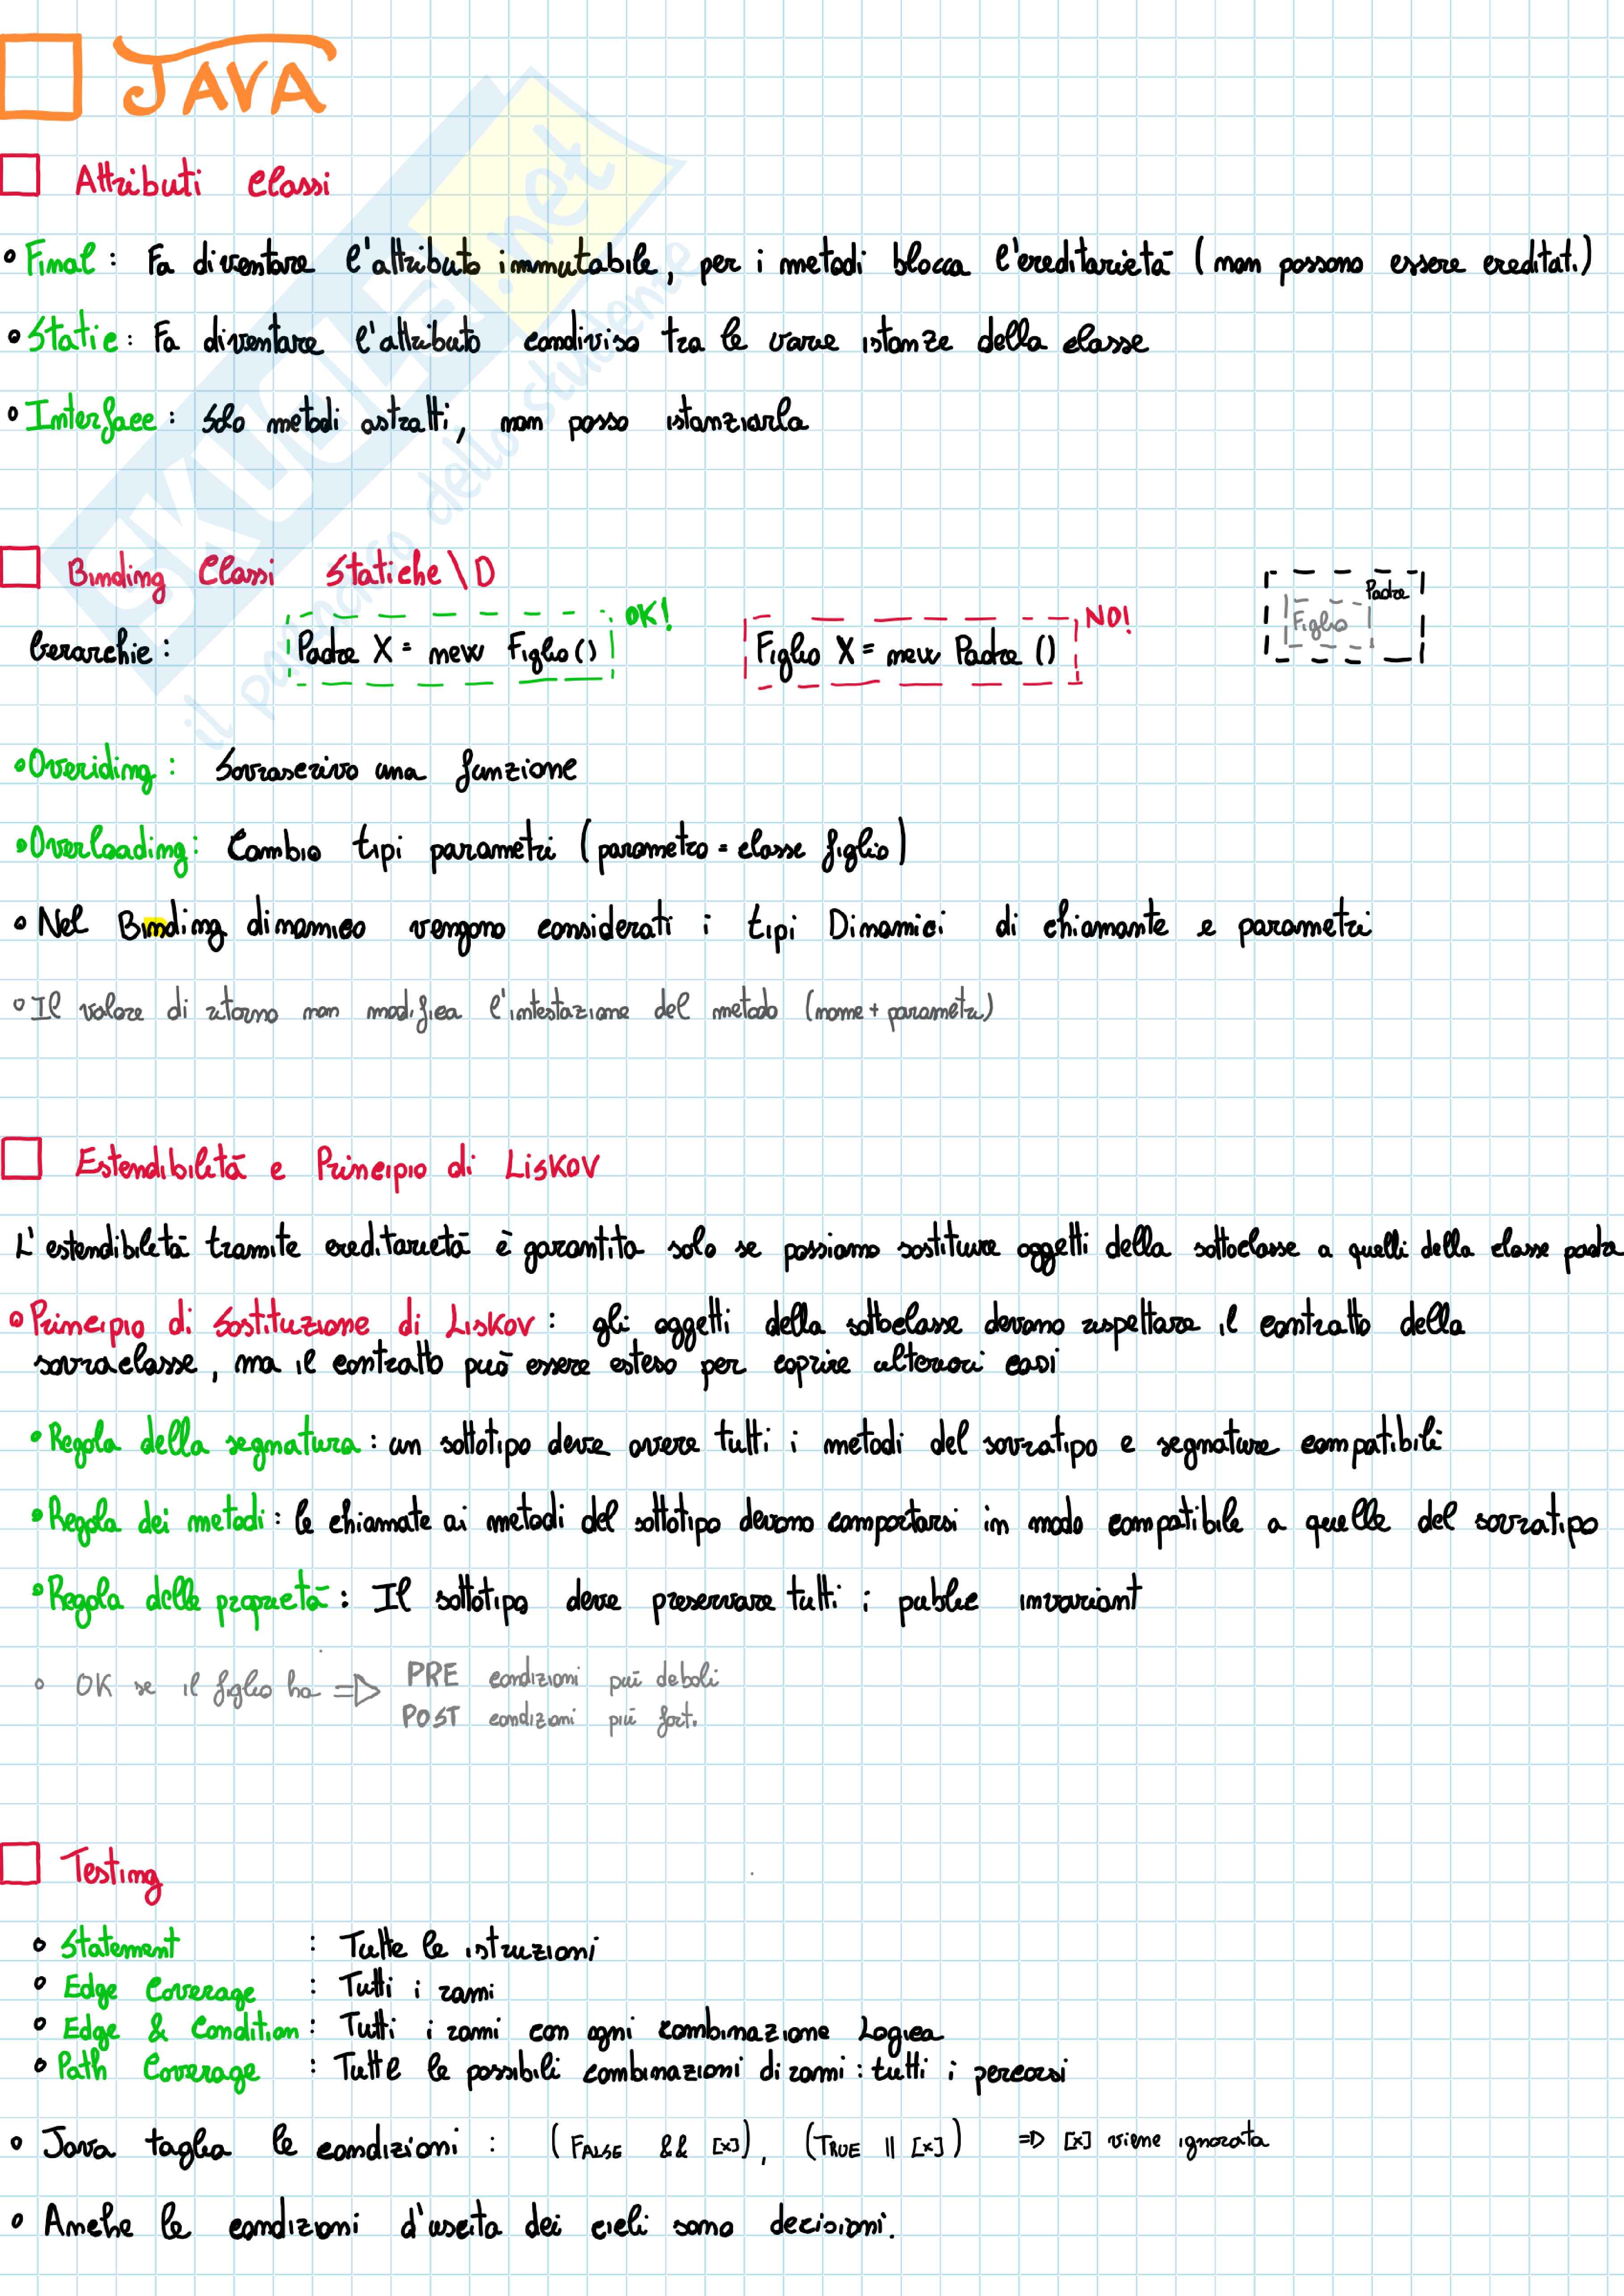 JAVA
Attributi Classi
Final: Fa diventare l'attributo immutabile, per i metodi blocca l'ereditarietà (non possono essere ereditati)
Static: Fa diventare l'attributo condiviso tra le varie istanze della classe
Interface: Solo metodi astratti, non posso istanziarla
SKUOLA.net
il paradiso dello studente
Binding Classi Statiche \ D
Gerarchie: Padre X = new Figlio() OK! Figlio X = new Padre () NO! Padre
Figlio
Overiding: Sovrascrivo una funzione
Overloading: Cambio tipi parametri (parametro = classe figlio)
Nel Binding dinamico vengono considerati i tipi Dinamici di chiamante e parametri
Il valore di ritorno non modifica l'intestazione del metodo (nome + parametri)
Estendibilità e Principio di Liskov
L'estendibilità tramite ereditarietà è garantita solo se possiamo sostituire oggetti della sottoclasse a quelli della classe padre
Principio di Sostituzione di Liskov: gli oggetti della sottoclasse devono rispettare il contratto della
sovraclasse, ma il contratto può essere esteso per coprire ulteriori casi
Regola della segnatura: un sottotipo deve avere tutti i metodi del sovratipo e segnature compatibili
Regola dei metodi: le chiamate ai metodi del sottotipo devono comportarsi in modo compatibile a quelle del sovratipo
Regola delle proprietà: Il sottotipo deve preservare tutti i public invariant
OK se il figlio ha => PRE condizioni più deboli
POST condizioni più forti
Testing
Statement : Tutte le istruzioni
Edge Coverage : Tutti i rami
Edge & Condition: Tutti i rami con ogni combinazione Logica
Path Coverage : Tutte le possibili combinazioni di rami: tutti i percorsi
Java taglia le condizioni: (FALSE && [x]), (TRUE || [x]) => [x] viene ignorata
Anche le condizioni d'uscita dei cicli sono decisioni.